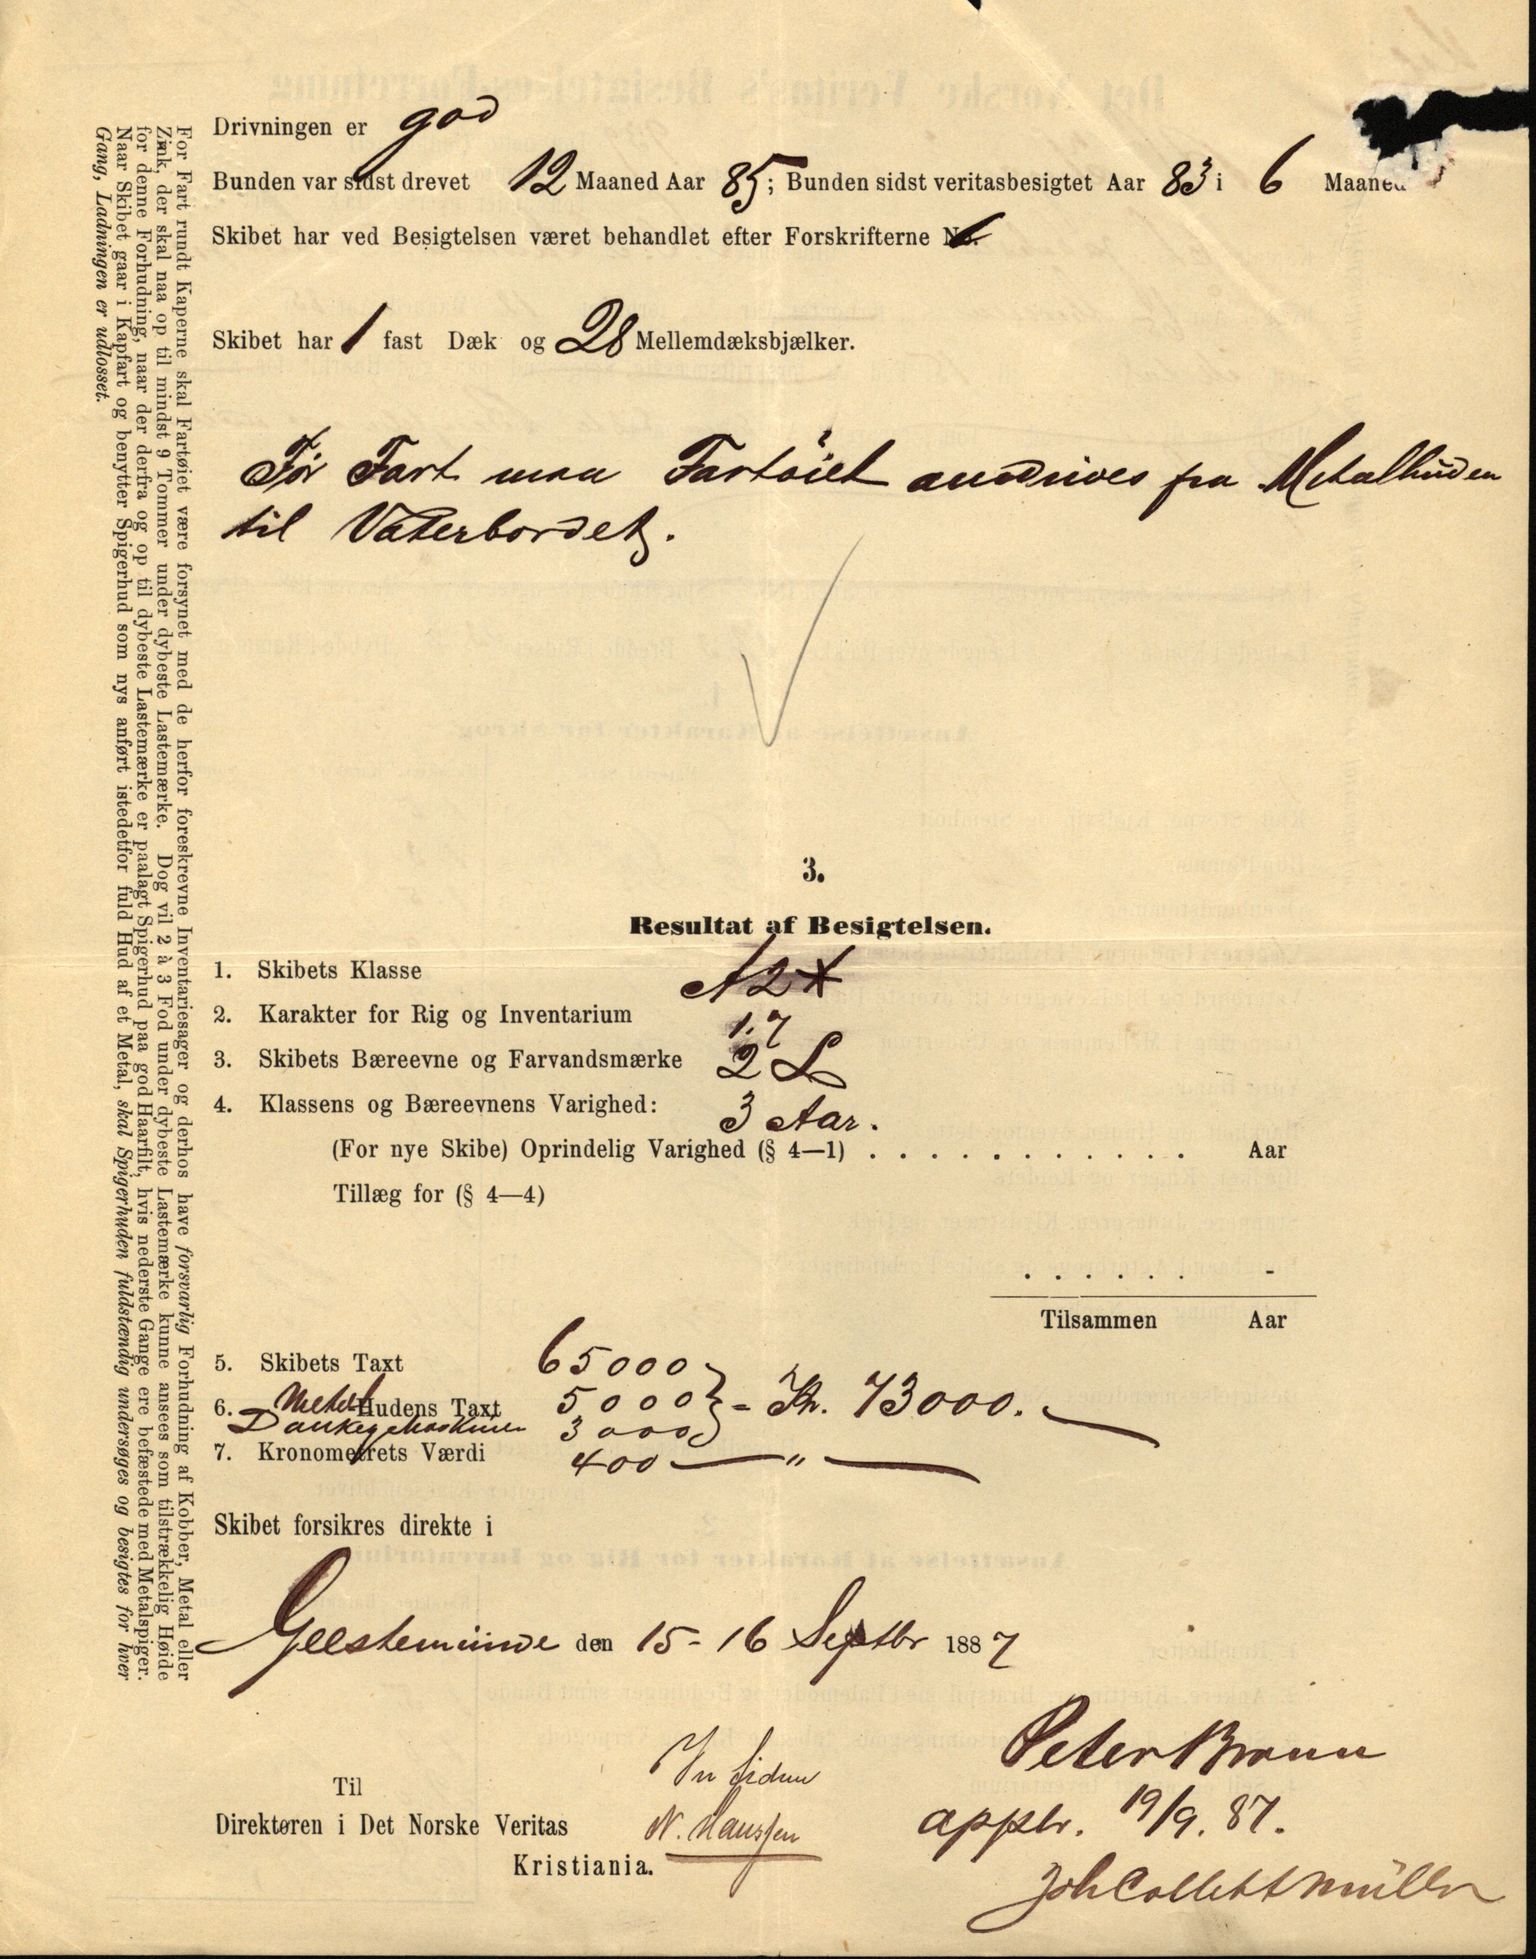 Drivningen er god
Bunden var sidst drevet 12 Maaned Aar 85; Bunden sidst veritasbesigtet Aar 83 i 6 Maaned
Skibet har ved Besigtelsen været behandlet efter Forskrifterne No. 6
Skibet har 1 fast Dæk og 28 Mellemdæksbjælker.
Før Fart maa Fartöiet andrives fra Metalhuden
til Vaterbordet.
3.
Resultat af Besigtelsen.
1. Skibets Klasse A2*
2. Karakter for Rig og Inventarium 1.7
3. Skibets Bæreevne og Farvandsmærke 2 L
4. Klassens og Bæreevnens Varighed: 3 Aar.
(For nye Skibe) Oprindelig Varighed (§ 4—1) . . . . . . . . . . . . Aar
Tillæg for (§ 4—4)
. . . . . . -
Tilsammen Aar
5. Skibets Taxt 65000
6. Metal Hudens Taxt 5000 = Kr. 73000.
3000
7. Kronometrets Værdi 400 — " —
Skibet forsikres direkte i
Geestemünde den 15-16 Septbr 1887
Peter Brown
Til
appbr. 19/9. 87.
Direktøren i Det Norske Veritas N. Hanssen
Kristiania.
Joh Collett Müller
For Fart rundt Kaperne skal Fartøiet være forsynet med de herfor foreskrevne Inventariesager og derhos have forsvarlig Forhudning af Kobber, Metal eller
Zink, der skal naa op til mindst 9 Tommer under dybeste Lastemærke. Dog vil 2 à 3 Fod under dybeste Lastemærke kunne ansees som tilstrækkelig Høide
for denne Forhudning, naar der derfra og op til dybeste Lastemærke er paalagt Spigerhud paa god Haarfilt, hvis nederste Gange ere befæstede med Metalspiger.
Naar Skibet gaar i Kapfart og benytter Spigerhud som nys anført istedetfor fuld Hud af et Metal, skal Spigerhuden fuldstændig undersøges og besigtes for hver
Gang, Ladningen er udlosset.